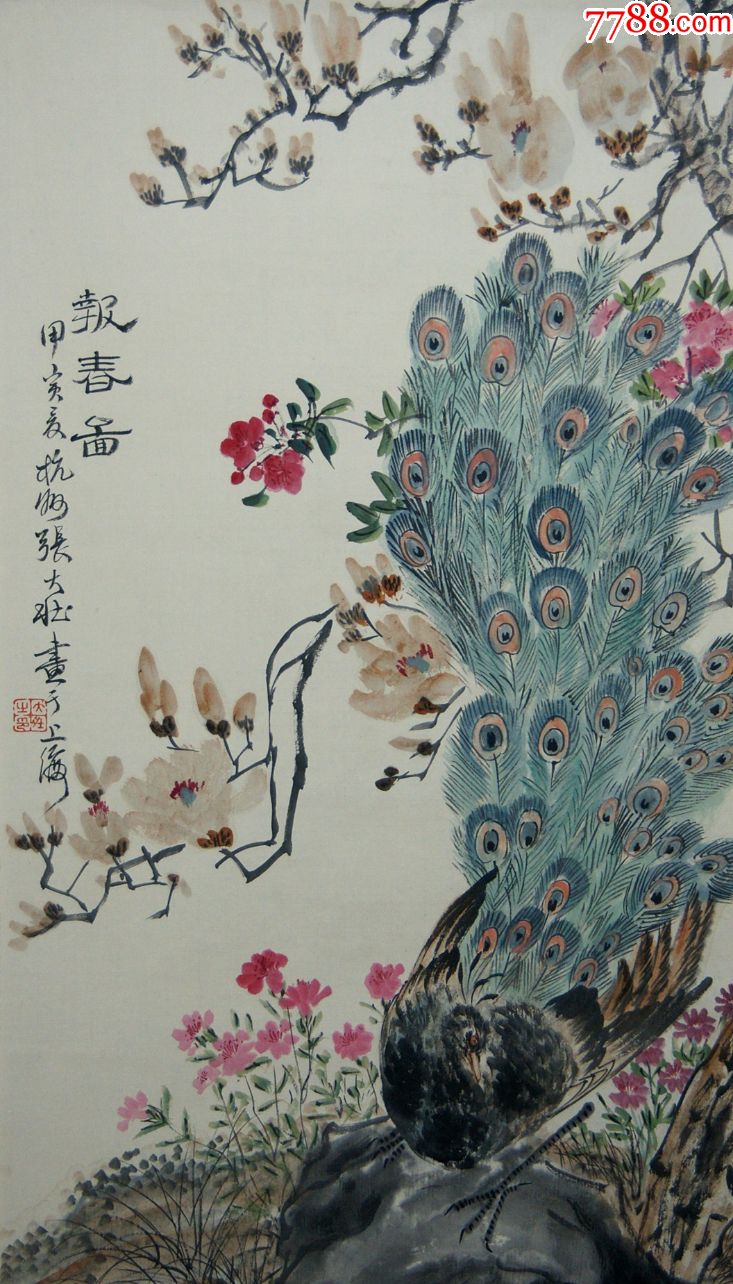 7788.com
報春圖
甲寅夏杭州張大壯畫于上海
大壯之印